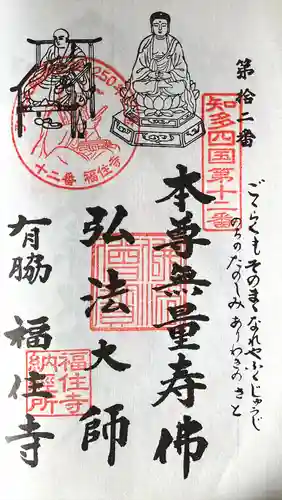 第拾二番
知多四国第十二番
ごくらくも そのまゝなれや ふくじゅうじ
のちの たのしみ ありわきの さと
本尊無量寿佛
弘法大師
十二番 福住寺
有脇 福住寺
福住寺
納経所